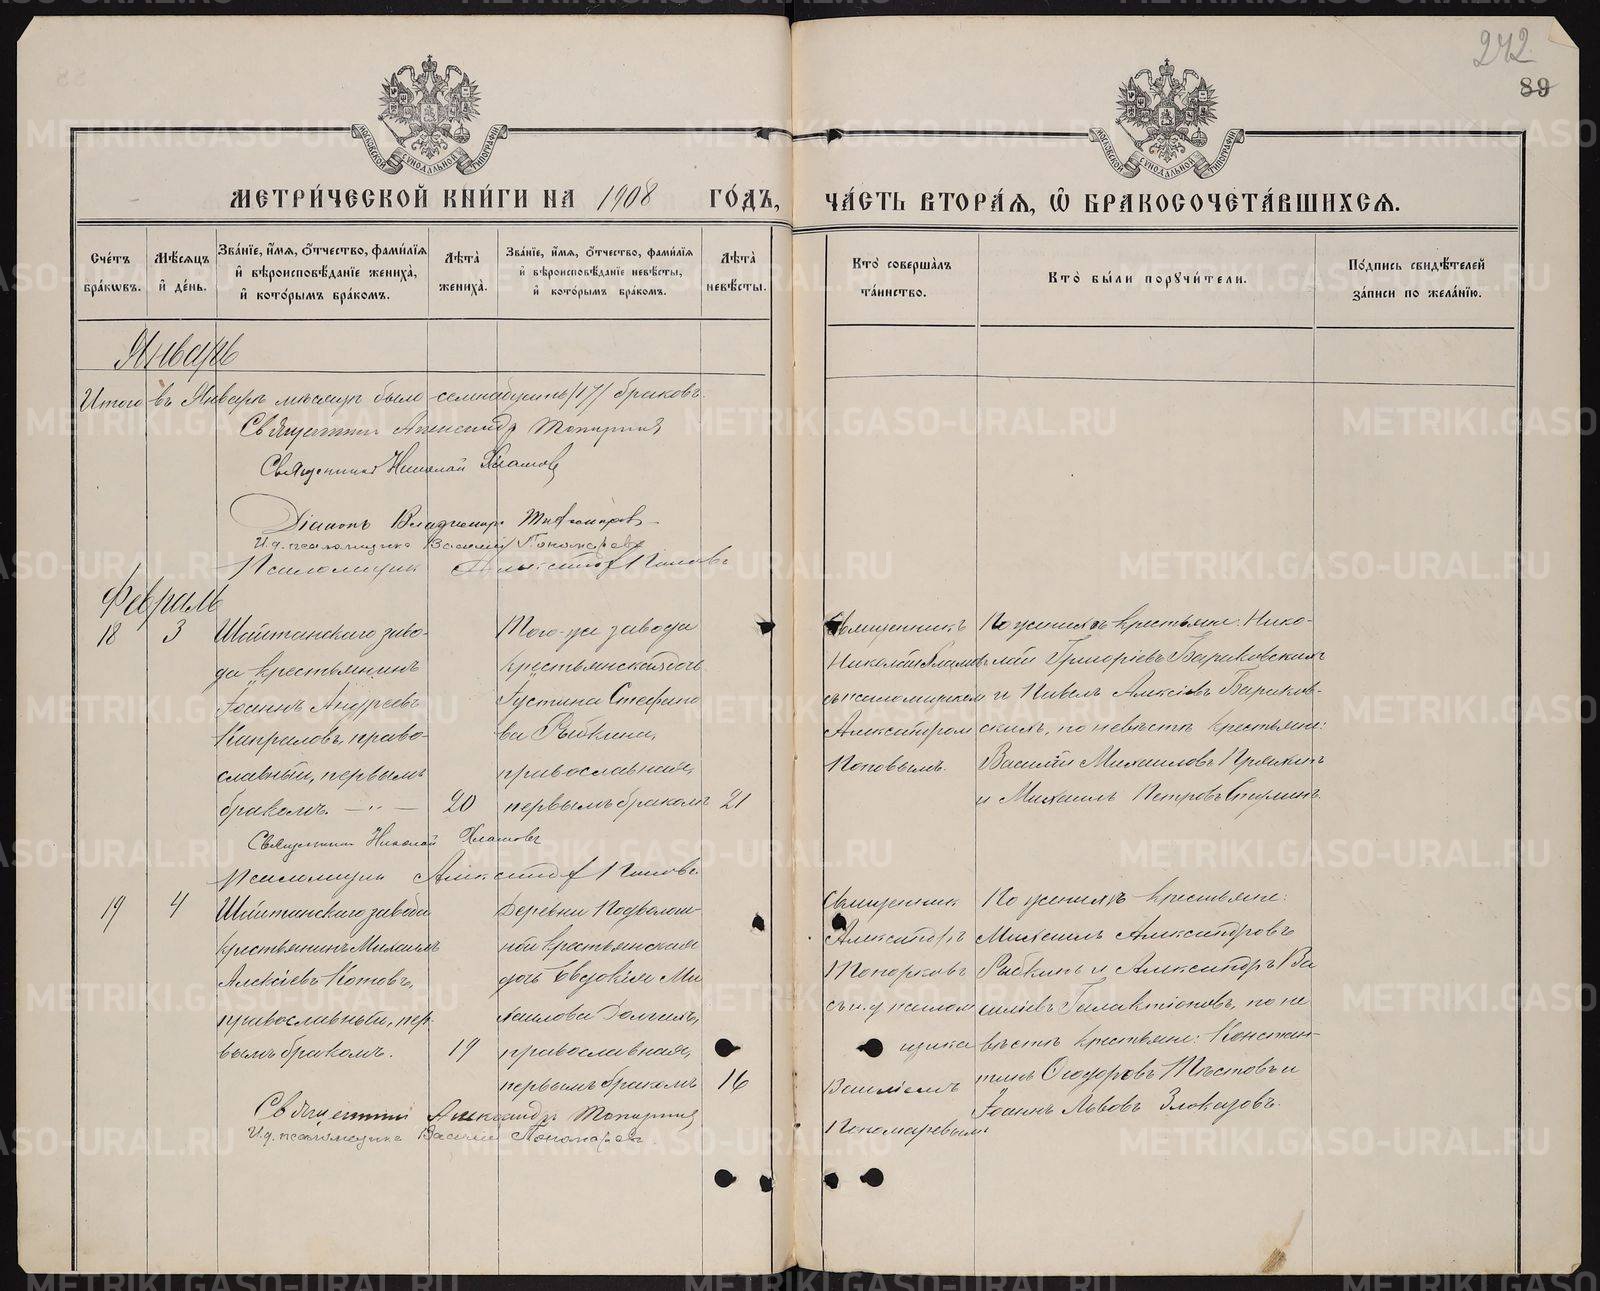 242
89
МОСКОВСКОЙ СУНОДАЛЬНОЙ ТИПОГРАФІИ
МОСКОВСКОЙ СУНОДАЛЬНОЙ ТИПОГРАФІИ
МЕТРИ́ЧЕСКОЙ КНИ́ГИ НА 1908 ГО́ДЪ,
ЧА́СТЬ ВТОРА́Ѧ, Ѽ БРАКОСОЧЕТА́ВШИХСѦ.
Сче́тъ бра́кѡвъ.
Мѣ́сѧцъ и҆ де́нь.
Зва́нїе, и҆́мѧ, ѻ҆́тчество, фами́лїѧ и҆ вѣроисповѣ́данїе жениха̀, и҆ кото́рымъ бра́комъ.
Лѣта̀ жениха̀.
Зва́нїе, и҆́мѧ, ѻ҆́тчество, фами́лїѧ и҆ вѣроисповѣ́данїе невѣ́сты, и҆ кото́рымъ бра́комъ.
Лѣта̀ невѣ́сты.
Кто̀ соверша́лъ та́инство.
Кто̀ бы́ли порꙋчи́тели.
По́дпись свидѣ́телей за́писи по жела́нїю.
Январь
Итого въ Январѣ мѣсяцѣ было семнадцать /17/ браковъ.
Священникъ Александръ Топорковъ
Священникъ Николай Хламовъ
Діаконъ Владимиръ
И.д. псаломщика Василій Пономаревъ
Псаломщикъ Александръ Поповъ
Февраль
18
3
Шайтанскаго заво-
да крестьянинъ
Іоаннъ Андреевъ
Копраловъ, право-
славный, первымъ
бракомъ.
20
Того-же завода
крестьянская дочь
Густина Стефано
ва Рыбкина,
православная,
первымъ бракомъ
21
Священникъ
Николай Хламовъ
съ псаломщикомъ
Александромъ
Поповымъ.
По женихѣ крестьяне: Нико-
лай Григоріевъ Бараковскихъ
и Павелъ Алексіевъ Бараков-
скихъ, по невѣстѣ крестьяне:
Василій Михаиловъ Пряхинъ
и Михаилъ Петровъ Ступинъ.
Священникъ Николай Хламовъ
Псаломщикъ Александръ Поповъ
19
4
Шайтанскаго завода
крестьянинъ Михаилъ
Алексіевъ Котовъ,
православный, пер-
вымъ бракомъ.
19
Деревни Подволош-
ной крестьянская
дочь Евдокія Ми
хаилова Долгихъ,
православная,
первымъ бракомъ
16
Священникъ
Александръ
Топорковъ
съ и.д псалом
щика
Василіемъ
Пономаревымъ
По женихѣ крестьяне:
Михаилъ Александровъ
Рыбкинъ и Александръ Ва
силіевъ Галактіоновъ, по не
вѣстѣ крестьяне: Констан-
тинъ Ѳеодоровъ Тѣстовъ и
Іоаннъ Львовъ Злоказовъ.
Священникъ Александръ Топорковъ
И.д. псаломщика Василій Пономаревъ
METRIKI.GASO-URAL.RU